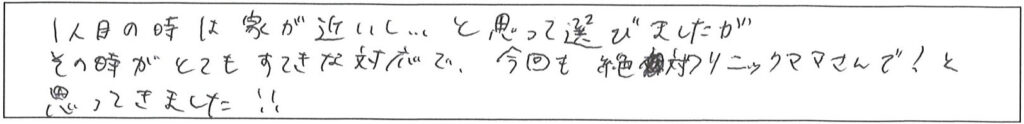 1人目の時は家が近いし…と思って選びましたが
その時がとてもすてきな対応で、今回も絶対クリニックママさんで！と
思ってきました!!